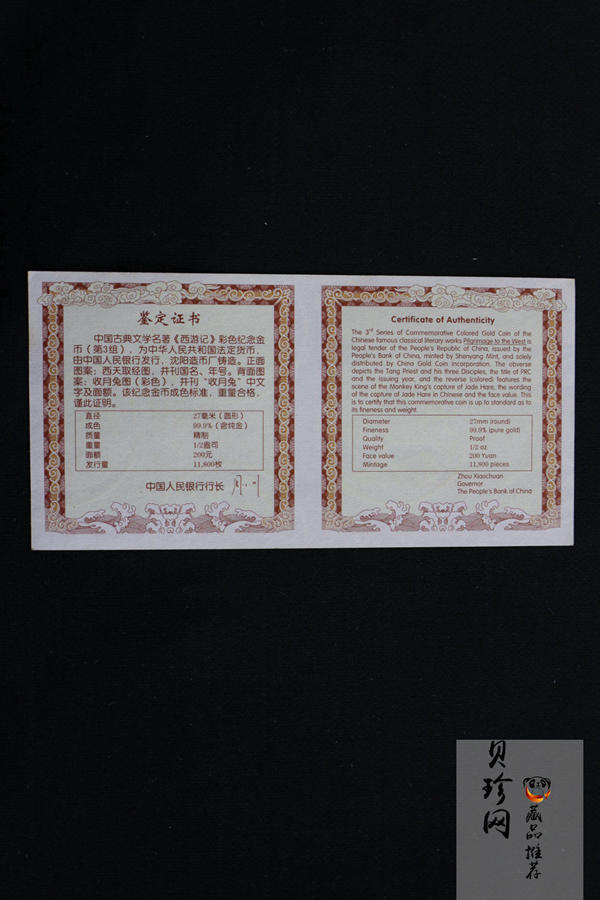 鉴定证书
中国古典文学名著《西游记》彩色纪念金
币（第3组），为中华人民共和国法定货币，
由中国人民银行发行，沈阳造币厂铸造。正面
图案：西天取经图，并刊国名、年号。背面图
案：收月兔图（彩色），并刊“收月兔”中文
字及面额。该纪念金币成色标准，重量合格，
谨此证明。
直径 27毫米（圆形）
成色 99.9%（含纯金）
质量 精制
重量 1/2盎司
面额 200元
发行量 11,800枚
中国人民银行行长
Certificate of Authenticity
The 3rd Series of Commemorative Colored Gold Coin of the
Chinese famous classical literary works Pilgrimage to the West is
legal tender of the People's Republic of China, issued by the
People's Bank of China, minted by Shenyang Mint, and solely
distributed by China Gold Coin Incorporation. The obverse
depicts the Tang Priest and his three Disciples, the title of PRC
and the issuing year, and the reverse (colored) features the
scene of the Monkey King's capture of Jade Hare, the wording
of the capture of Jade Hare in Chinese and the face value. This
is to certify that this commemorative coin is up to standard as to
its fineness and weight.
Diameter 27mm (round)
Fineness 99.9% (pure gold)
Quality Proof
Weight 1/2 oz
Face value 200 Yuan
Mintage 11,800 pieces
Zhou Xiaochuan
Governor
The People's Bank of China
贝珍网
藏品推荐